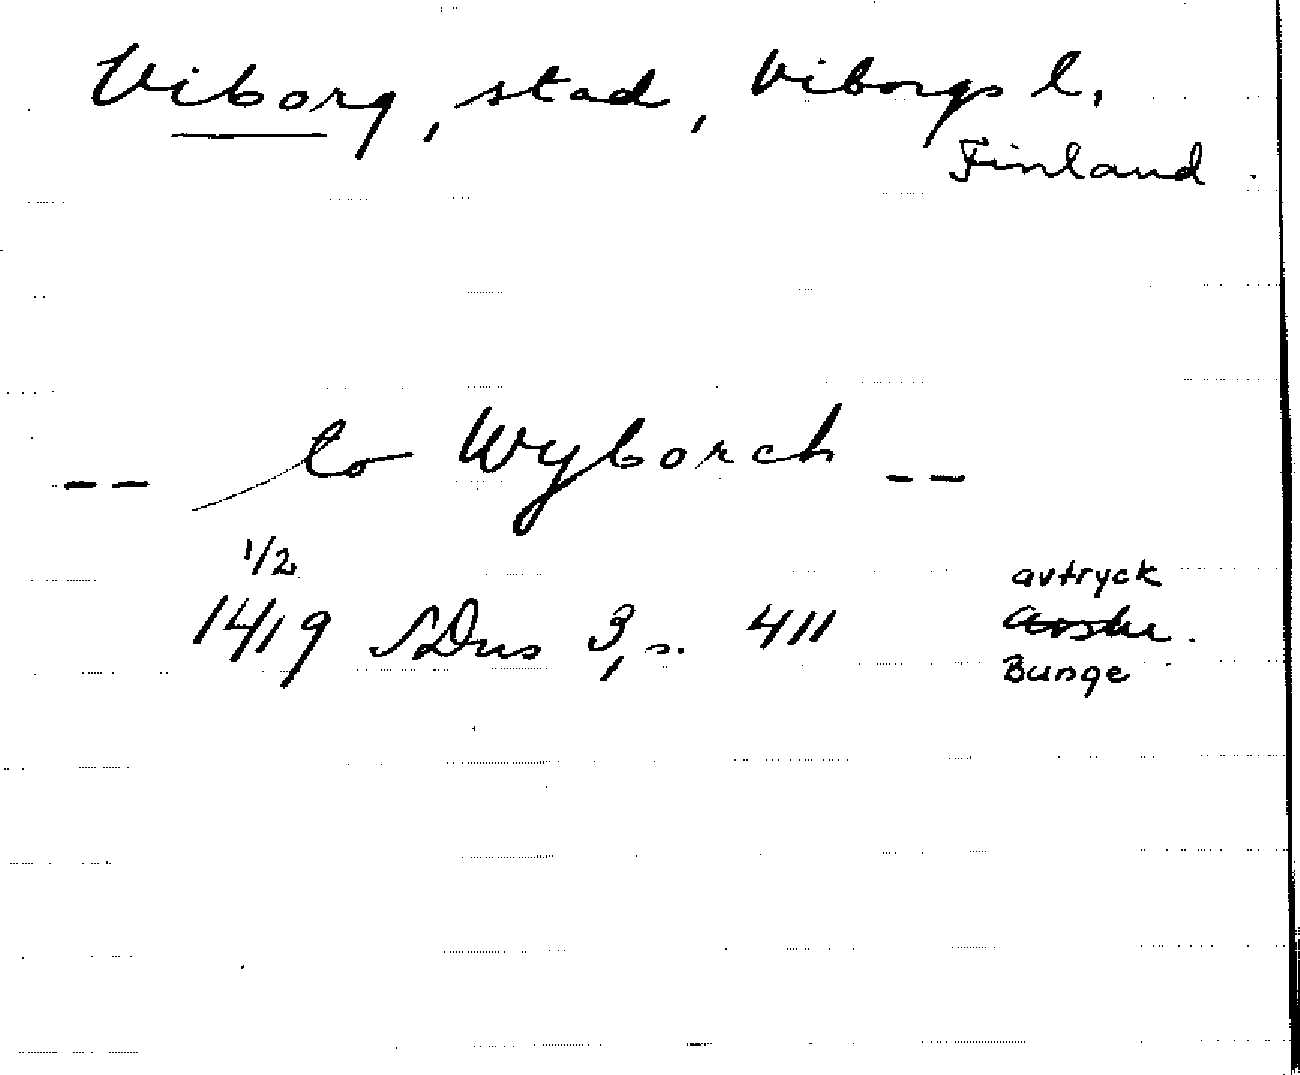 Viborg, stad, Viborgs l.
Finland.
-- to Wyborch --
1/2
1419 SDns 3, s. 411
avtryck
Bunge